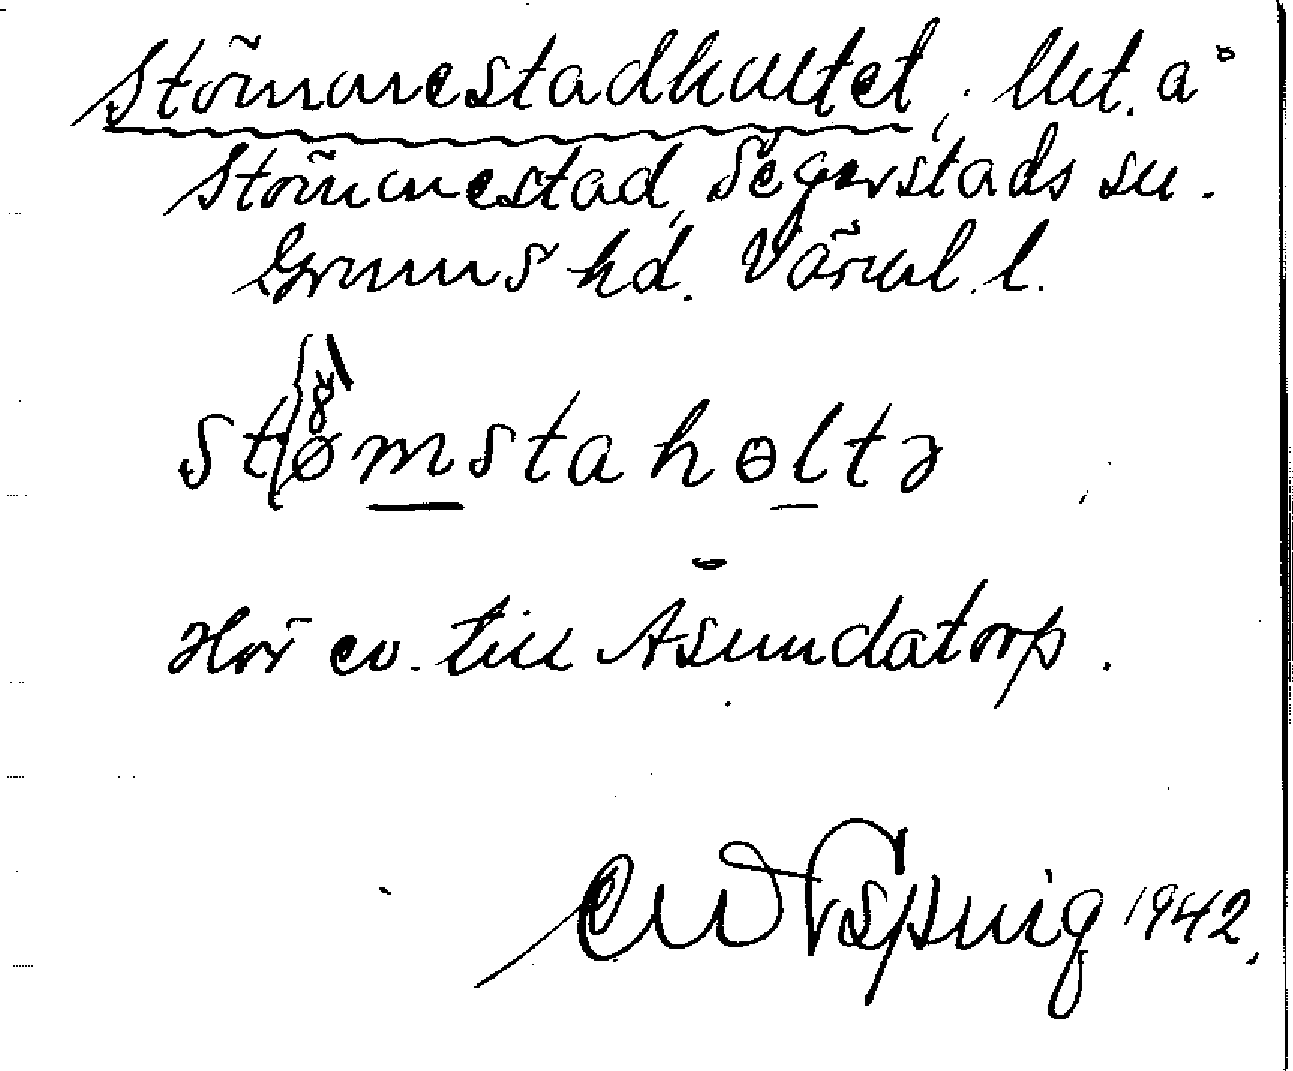 Stömnestadhultet, Ut. å
Stömnestad, Segerstads sn.
Grums hd. Värml. l.
stømstahɵltə
Hör ev. till Åsundatorp.
1942.